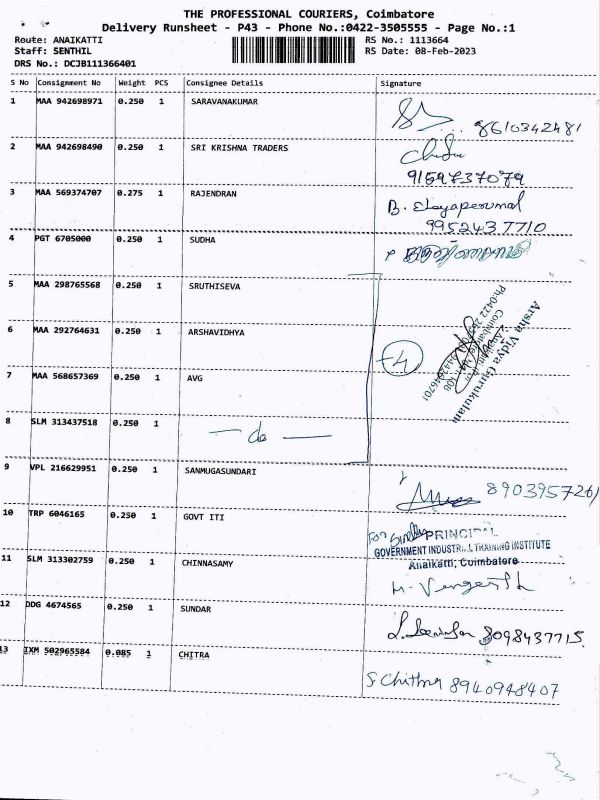 THE PROFESSIONAL COURIERS, Coimbatore
Delivery Runsheet - P43 - Phone No.:0422-3505555 - Page No.:1
Route: ANAIKATTI RS No.: 1113664
Staff: SENTHIL RS Date: 08-Feb-2023
DRS No.: DCJB111366401
S No Consignment No Weight PCS Consignee Details Signature
1 MAA 942698971 0.250 1 SARAVANAKUMAR 8610342481
2 MAA 942698490 0.250 1 SRI KRISHNA TRADERS
9159737079
3 MAA 569374707 0.275 1 RAJENDRAN B. Elayaperumal
9952437710
4 PGT 6705000 0.250 1 SUDHA
5 MAA 298765568 0.250 1 SRUTHISEVA
6 MAA 292764631 0.250 1 ARSHAVIDHYA
Arsha Vidya Gurukulam
7 MAA 568657369 0.250 1 AVG
8 SLM 313437518 0.250 1 — do —
9 VPL 216629951 0.250 1 SANMUGASUNDARI
10 TRP 6046165 0.250 1 GOVT ITI For PRINCIPAL
GOVERNMENT INDUSTRIAL TRAINING INSTITUTE
Anaikatti, Coimbatore
11 SLM 313302759 0.250 1 CHINNASAMY
12 DDG 4674565 0.250 1 SUNDAR 8098437715
13 IXM 502965584 0.085 1 CHITRA S Chithra 8940948407